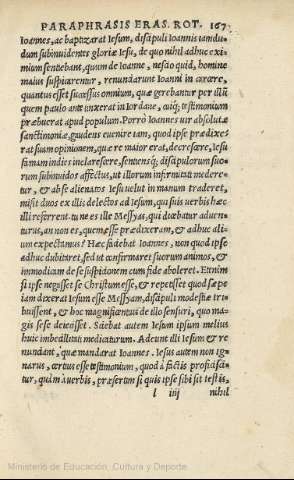 PARAPHRASIS ERAS. ROT. 167
Ioannes, ac baptizarat Iesum, discipuli Ioannis iamdu
dum subinuidentes gloriæ Iesu, de quo nihil adhuc exi
mium sentiebant, quum de Ioanne, nescio quid, homine
maius suspicarentur, renunciarunt Ioanni in carcere,
quantus esset successus omnium, quæ gerebantur per illũ
quem paulo ante tinxerat in Iordane, cuiq; testimonium
præbuerat apud populum. Porro Ioannes uir absolutæ
sanctimoniæ, gaudens euenire iam, quod ipse prædixe/
rat suam opinionem, quæ re maior erat, decrescere, Iesu
famam indies inclarescere, sentiensq; discipulorum suo/
rum subinuidos affectus, ut illorum infirmitati mederε/
tur, & à se alienatos Iesu uelut in manum traderet,
misit duos ex illis delectos ad Iesum, qui suis uerbis hæc
illi referrent. tu ne es ille Messyas, qui dicebatur aduen/
turus, an non es, quem esse prædixeram, & adhuc ali/
um expectamus? Hæc scidebat Ioannes, non quod ipse
adhuc dubitaret, sed ut confirmaret suorum animos, &
inuidiam de se suspitionem cum fide aboleret. Etenim
si ipse negisset se Christum esse, & repetisset quod sæpe
iam dixerat Iesum esse Messyam, discipuli modestiæ tri
buissent, & hoc magnificentius de illo sensuri, quo ma/
gis sese deiecisset. Sciebat autem Iesum ipsum melius
huic imbecillitati medicaturum. Adeunt illi Iesum & re
nunciant, quæ mandarat Ioannes. Iesus autem non ign
narus, certius esse testimonium, quod à factis proficisci/
tur, quàm à uerbis, præsertim si quis ipse sibi sit testis,
l iiij nihil
Ministerio de Educación, Cultura y Deporte